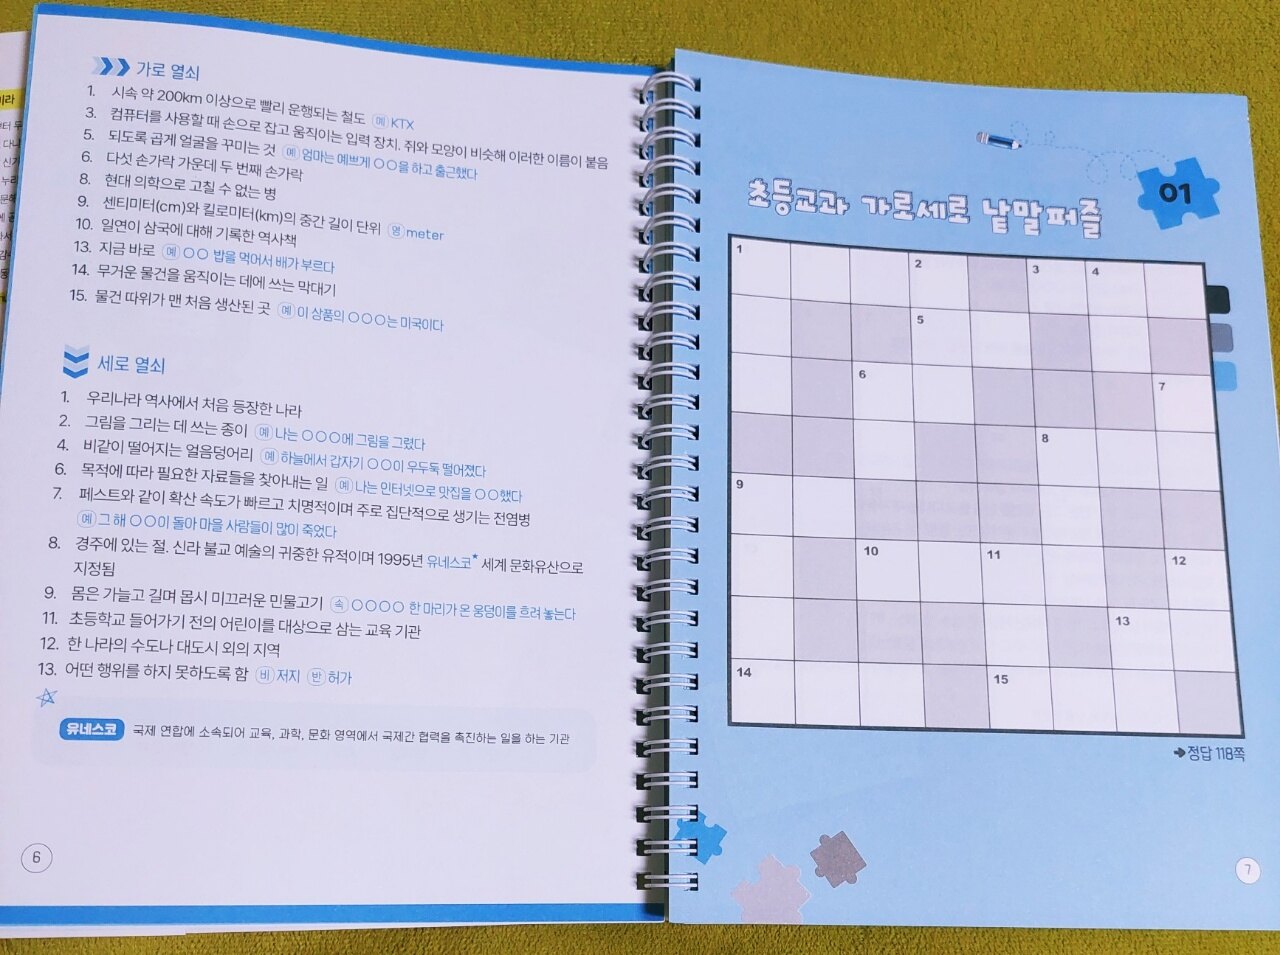 가로 열쇠
1. 시속 약 200km 이상으로 빨리 운행되는 철도 예 KTX
3. 컴퓨터를 사용할 때 손으로 잡고 움직이는 입력 장치. 쥐와 모양이 비슷해 이러한 이름이 붙음
5. 되도록 곱게 얼굴을 꾸미는 것 예 엄마는 예쁘게 〇〇을 하고 출근했다
6. 다섯 손가락 가운데 두 번째 손가락
8. 현대 의학으로 고칠 수 없는 병
9. 센티미터(cm)와 킬로미터(km)의 중간 길이 단위 영 meter
10. 일연이 삼국에 대해 기록한 역사책
13. 지금 바로 예 〇〇 밥을 먹어서 배가 부르다
14. 무거운 물건을 움직이는 데에 쓰는 막대기
15. 물건 따위가 맨 처음 생산된 곳 예 이 상품의 〇〇〇는 미국이다
세로 열쇠
1. 우리나라 역사에서 처음 등장한 나라
2. 그림을 그리는 데 쓰는 종이 예 나는 〇〇〇에 그림을 그렸다
4. 비같이 떨어지는 얼음덩어리 예 하늘에서 갑자기 〇〇이 우두둑 떨어졌다
6. 목적에 따라 필요한 자료들을 찾아내는 일 예 나는 인터넷으로 맛집을 〇〇했다
7. 페스트와 같이 확산 속도가 빠르고 치명적이며 주로 집단적으로 생기는 전염병
예 그 해 〇〇이 돌아 마을 사람들이 많이 죽었다
8. 경주에 있는 절. 신라 불교 예술의 귀중한 유적이며 1995년 유네스코* 세계 문화유산으로
지정됨
9. 몸은 가늘고 길며 몹시 미끄러운 민물고기 속 〇〇〇〇 한 마리가 온 웅덩이를 흐려 놓는다
11. 초등학교 들어가기 전의 어린이를 대상으로 삼는 교육 기관
12. 한 나라의 수도나 대도시 외의 지역
13. 어떤 행위를 하지 못하도록 함 비 저지 반 허가
유네스코 국제 연합에 소속되어 교육, 과학, 문화 영역에서 국제간 협력을 촉진하는 일을 하는 기관
6
초등교과 가로세로 낱말퍼즐
01
1 2 3 4
5
6 7
8
9
10 11 12
13
14 15
➔정답 118쪽
7